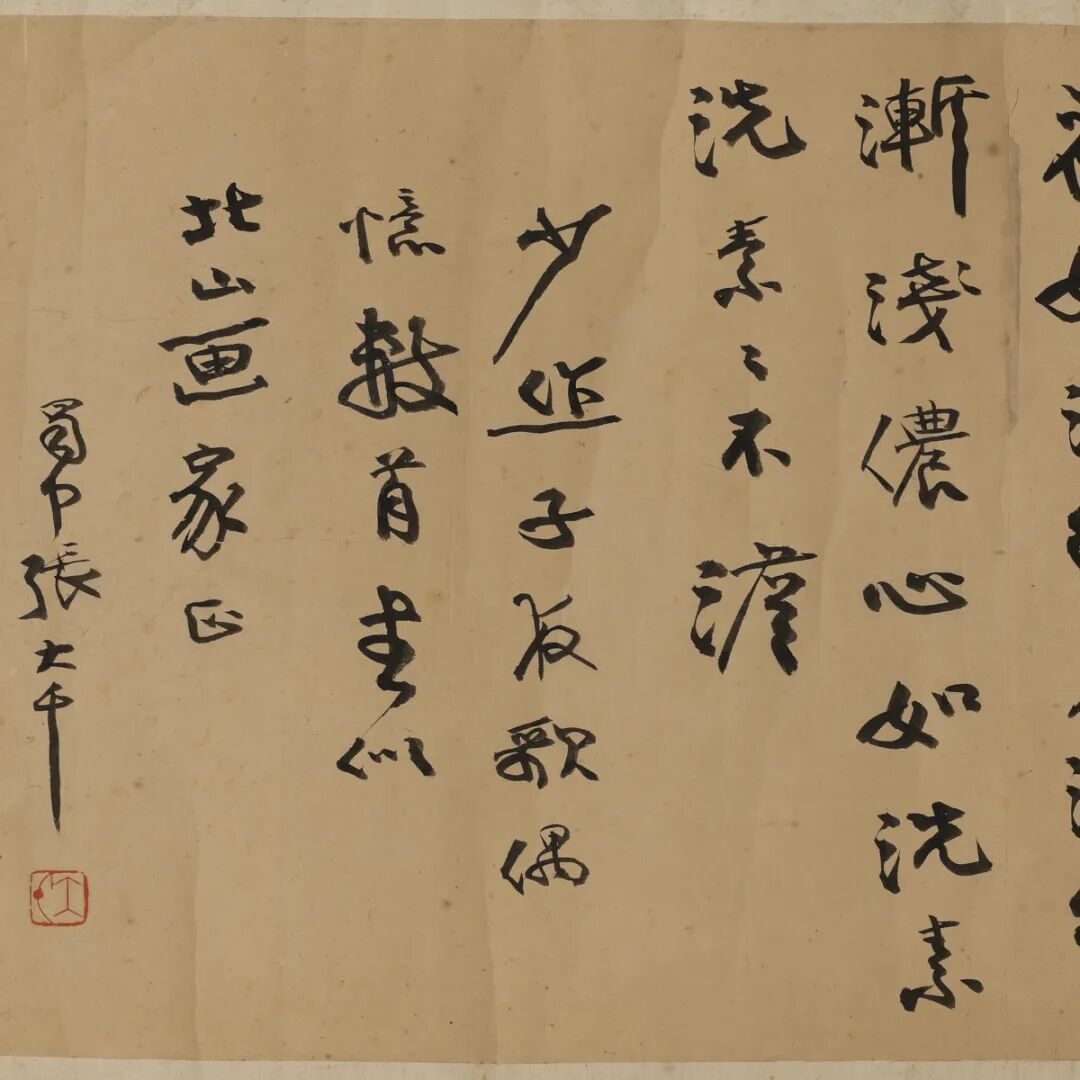 漸淺儂心如洗素
洗素〻不澹
少作子夜歌偶
憶數首書似
北山画家正
蜀中張大千